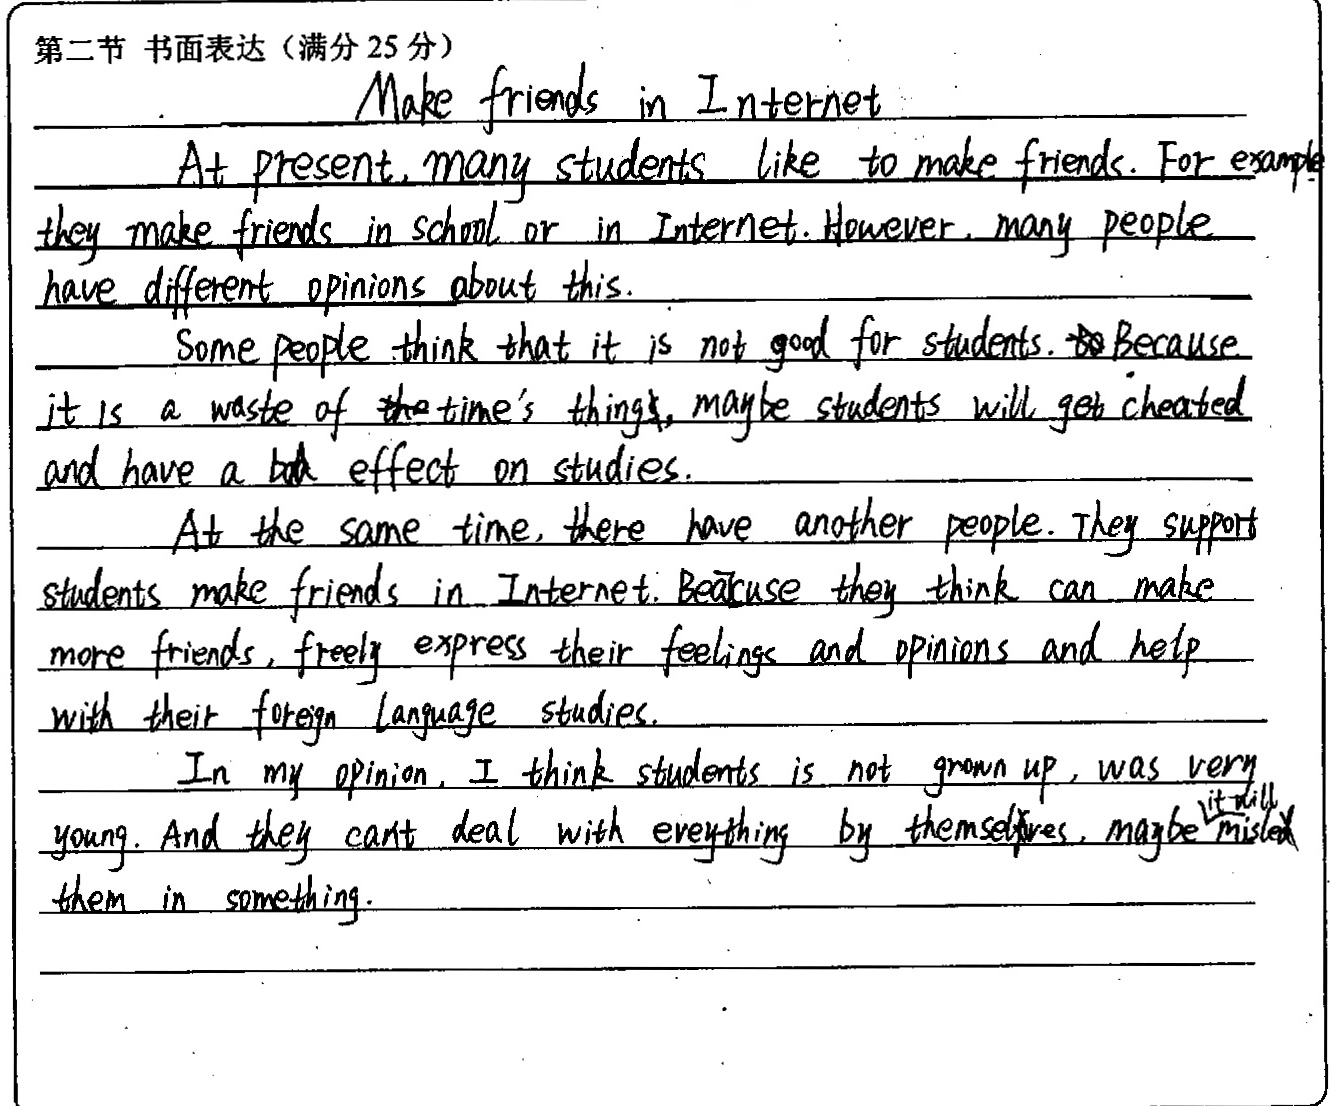 第二节 书面表达（满分 25 分）
Make friends in Internet
At present, many students like to make friends. For example
they make friends in school or in Internet. However, many people
have different opinions about this.
Some people think that it is not good for students. Because
it is a waste of time's things, maybe students will get cheated
and have a bad effect on studies.
At the same time, there have another people. They support
students make friends in Internet. Beacuse they think can make
more friends, freely express their feelings and opinions and help
with their foreign language studies.
In my opinion, I think students is not grown up, was very
young. And they can't deal with eveything by themselves, maybe it will mislead
them in something.